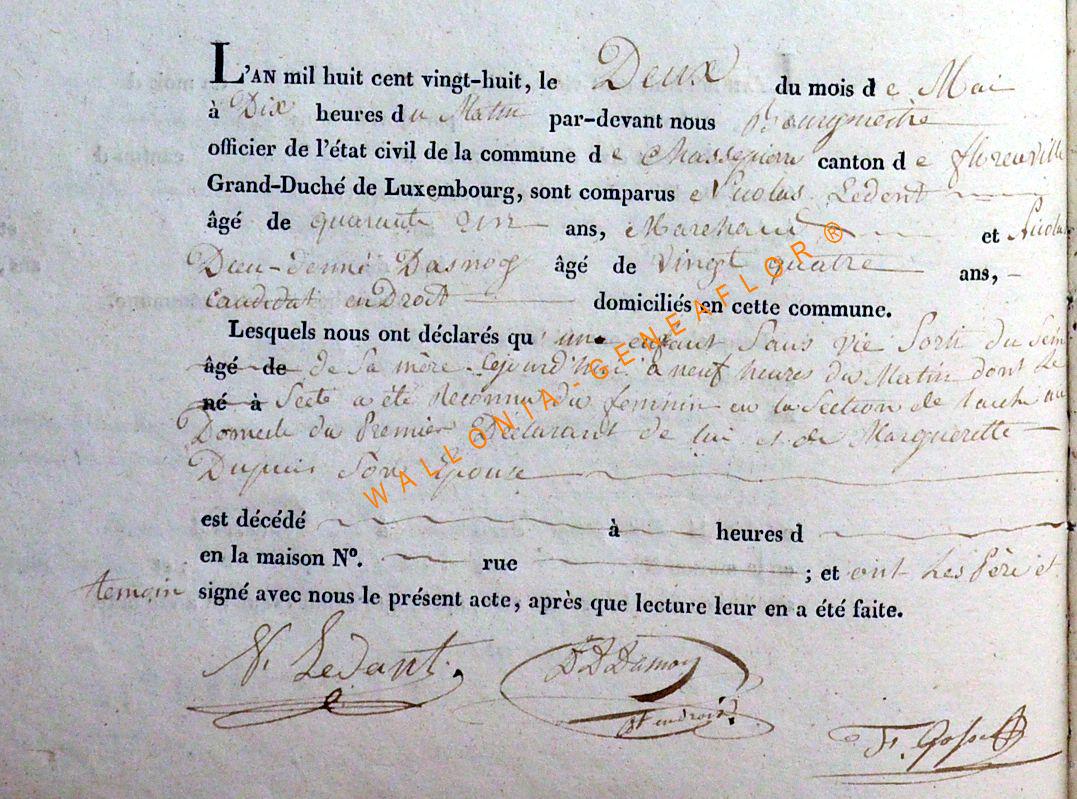 L'AN mil huit cent vingt-huit, le Deux du mois d e Mai
à Dix heures d u Matin par-devant nous Bourgmestre
officier de l'état civil de la commune d e Chassepierre canton d e florenville
Grand-Duché de Luxembourg, sont comparus Nicolas Ledent
âgé de quarante ans, Marchand et Nicolas
Dieu-donné Dasnoy âgé de Vingt quatre ans,
candidat en Droit domiciliés en cette commune.
Lesquels nous ont déclarés qu' une enfant Sans vie Sorti du Sein
âgé de de Sa mère cejourd'hui à neuf heures du Matin dont le
né à Sexe a été Reconnu du feminin en la Section de au
Domicile du Premier Déclarant de lui et de Marguerette
Dupuis Son Epouse
est décédé à heures d
en la maison Nº. rue ; et ont Les Père et
temoin signé avec nous le présent acte, après que lecture leur en a été faite.
N. Ledant.
D D Dasnoy
en droit
WALLONIA-GENEAFLOR ®